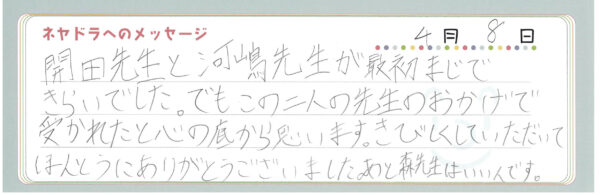 ネヤドラへのメッセージ
4月8日
開田先生と河嶋先生が最初まじで
きらいでした。でもこの二人の先生のおかげで
受かれたと心の底から思います。きびしくしていただいて
ほんとうにありがとうございました。あと森先生はいい人です。